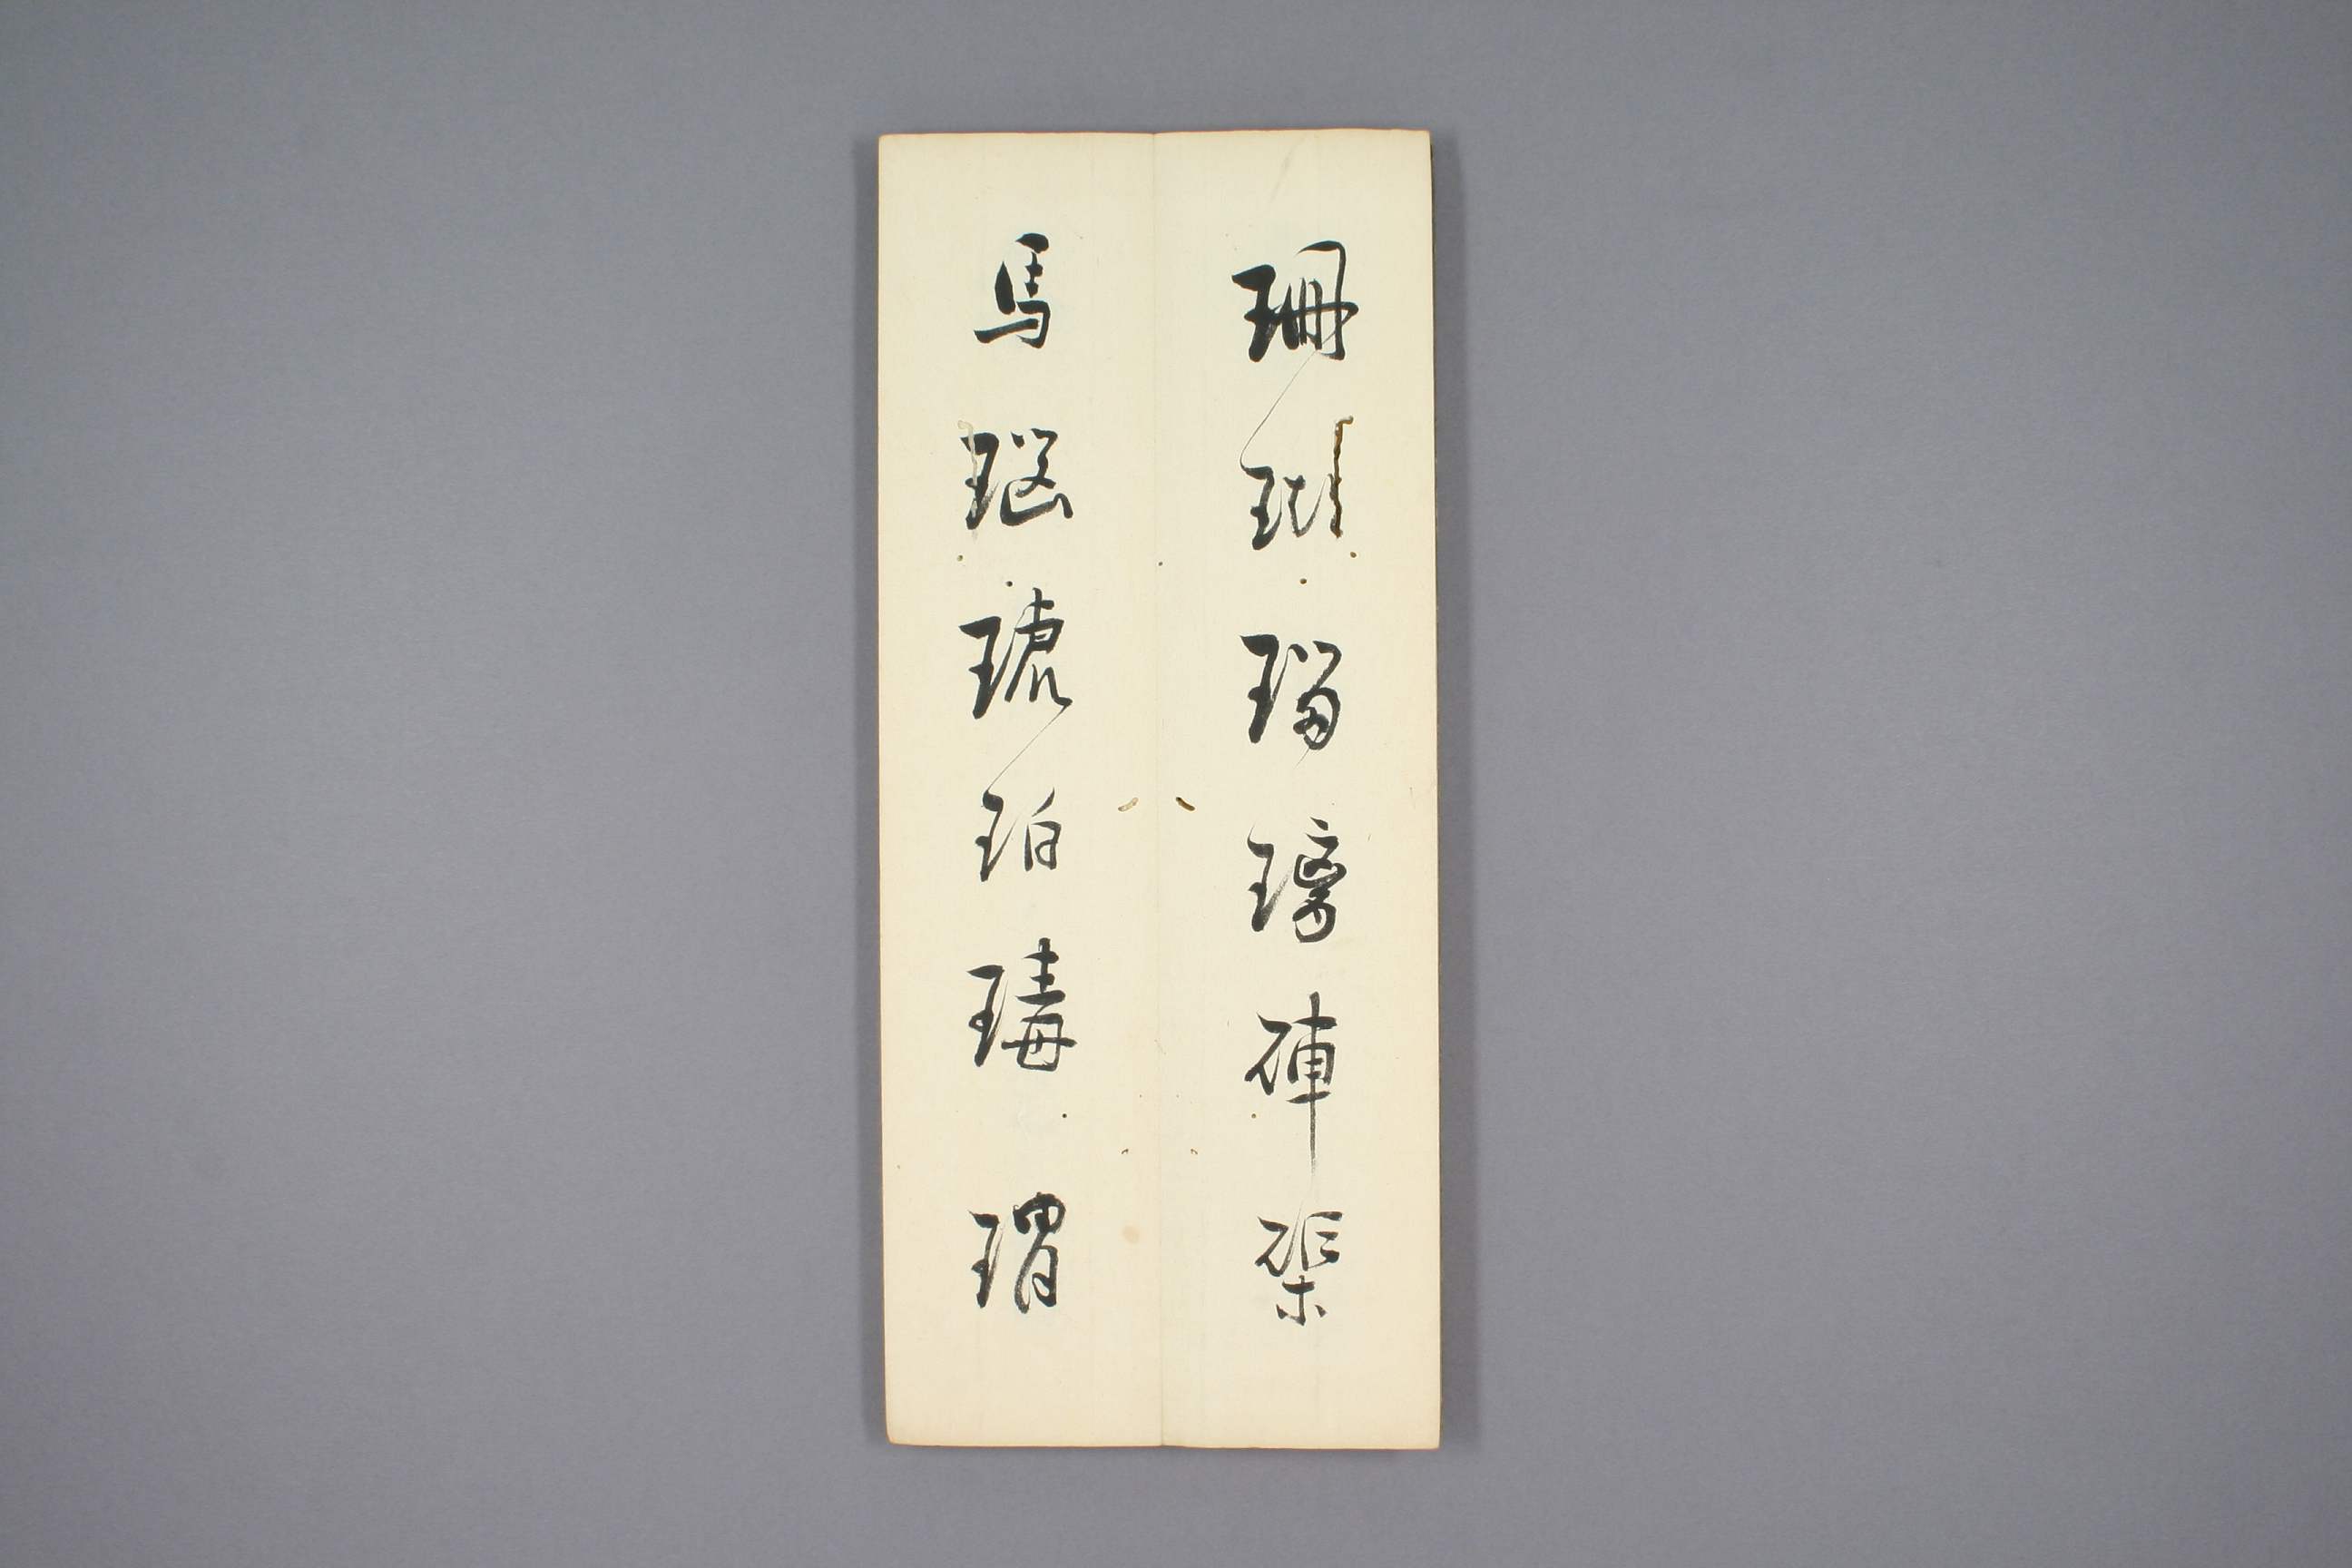 珊瑚瑠璃硨磲
馬瑙琥珀瑇瑁